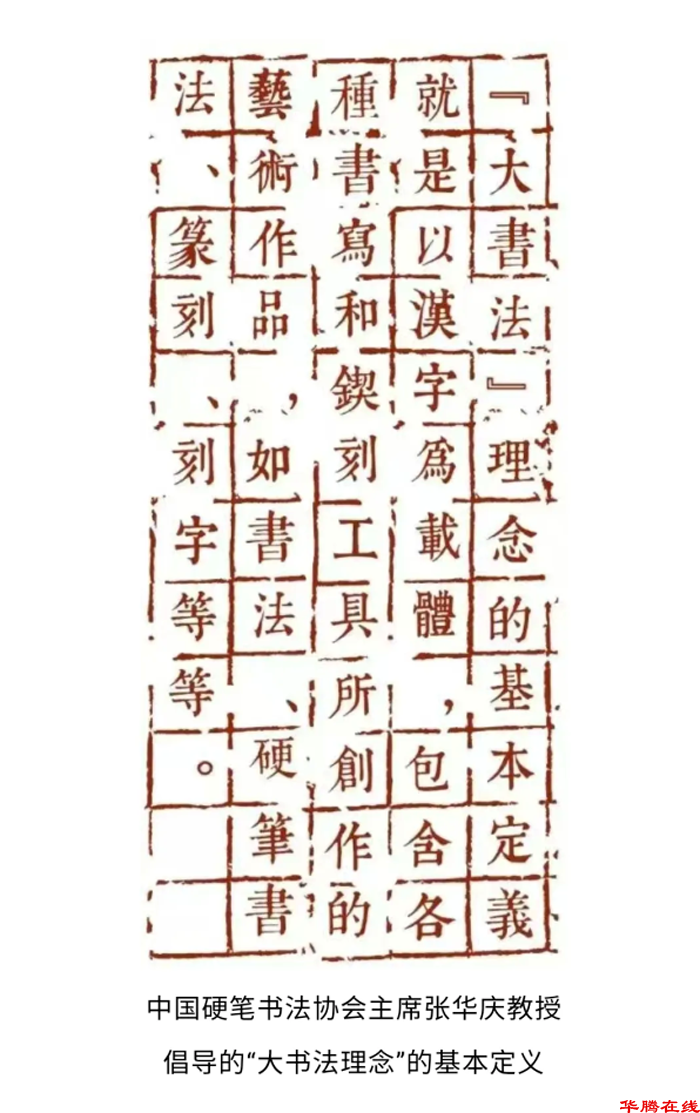 『大書法』理念的基本定義
就是以漢字爲載體，包含各
種書寫和鍥刻工具所創作的
藝術作品，如書法、硬筆書
法、篆刻、刻字等等。
中国硬笔书法协会主席张华庆教授
倡导的“大书法理念”的基本定义
华腾在线